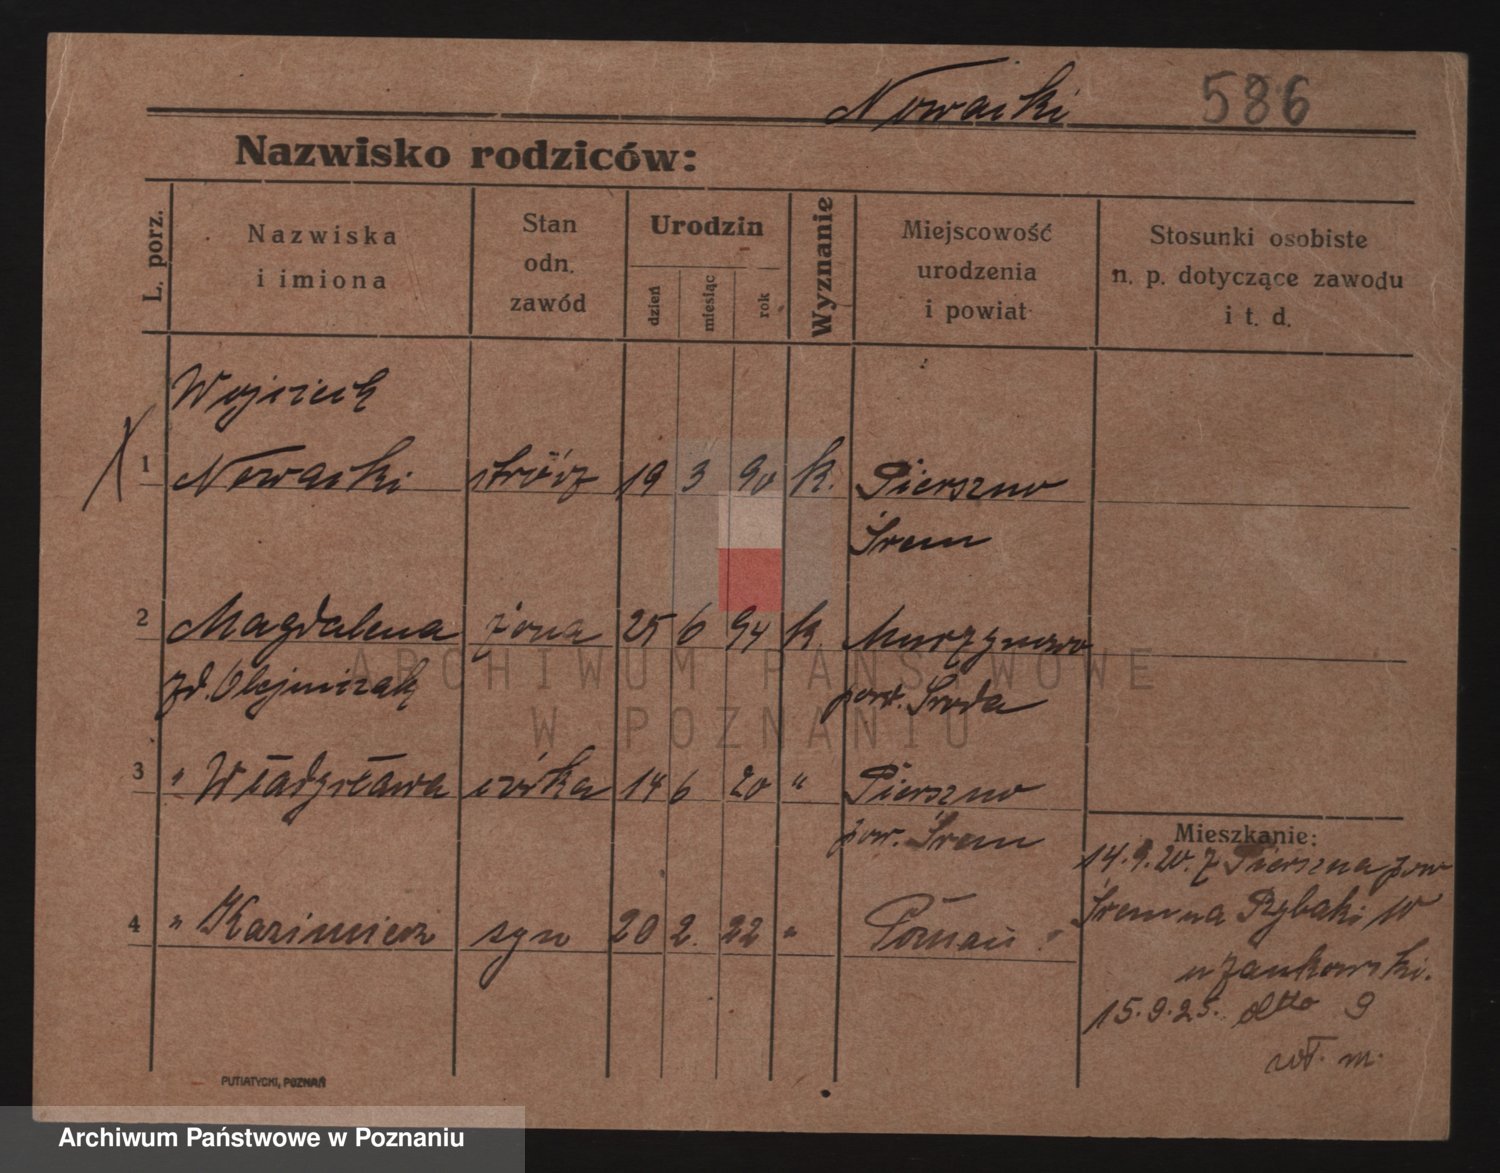 Nowacki 586
Nazwisko rodziców:
L. porz.
Nazwiska
i imiona
Stan
odn.
zawód
Urodzin
dzień
miesiąc
rok
Wyznanie
Miejscowość
urodzenia
i powiat
Stosunki osobiste
n. p. dotyczące zawodu
i t. d.
Wojciech
1 Nowacki stróż 19 3 90 k. Pierszno
Śrem
2 Magdalena żona 25 6 94 k. Murzynowo
zd. Olejniczak pow. Środa
3 " Władysława córka 14 6 20 " Pierszno
pow. Śrem
4 " Kazimierz syn 20 2. 22 " Poznań
Mieszkanie:
14.9.20. z Pierszna pow
Śrem na Rybaki 10
u Jankowski.
15.9.25. dtto 9
wł. m.
PUTIATYCKI, POZNAŃ
ARCHIWUM PAŃSTWOWE
W POZNANIU
Archiwum Państwowe w Poznaniu